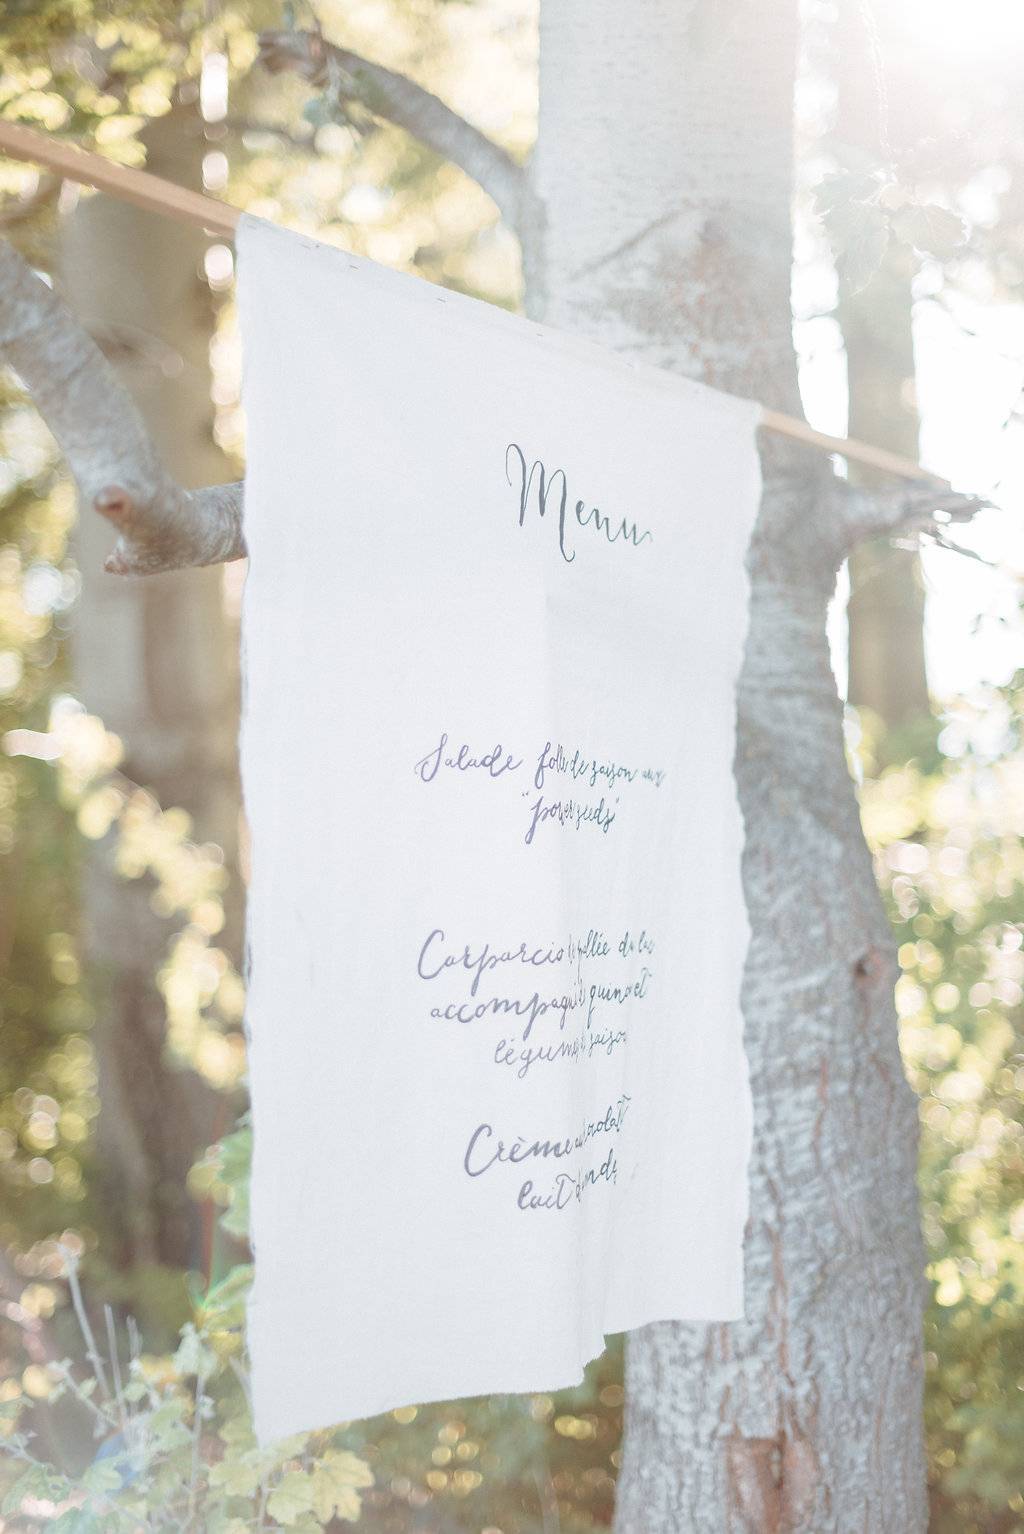 Menu
Salade folle de saison aux
"power seeds"
Carparcio
accompagné quinoa et
légumes saison
Crème chocolat
lait